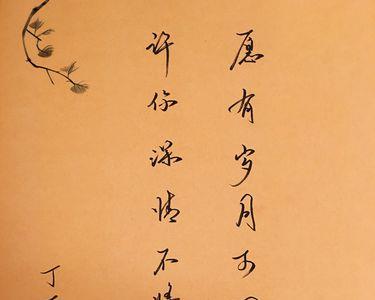 愿有岁月可
许你深情不
丁